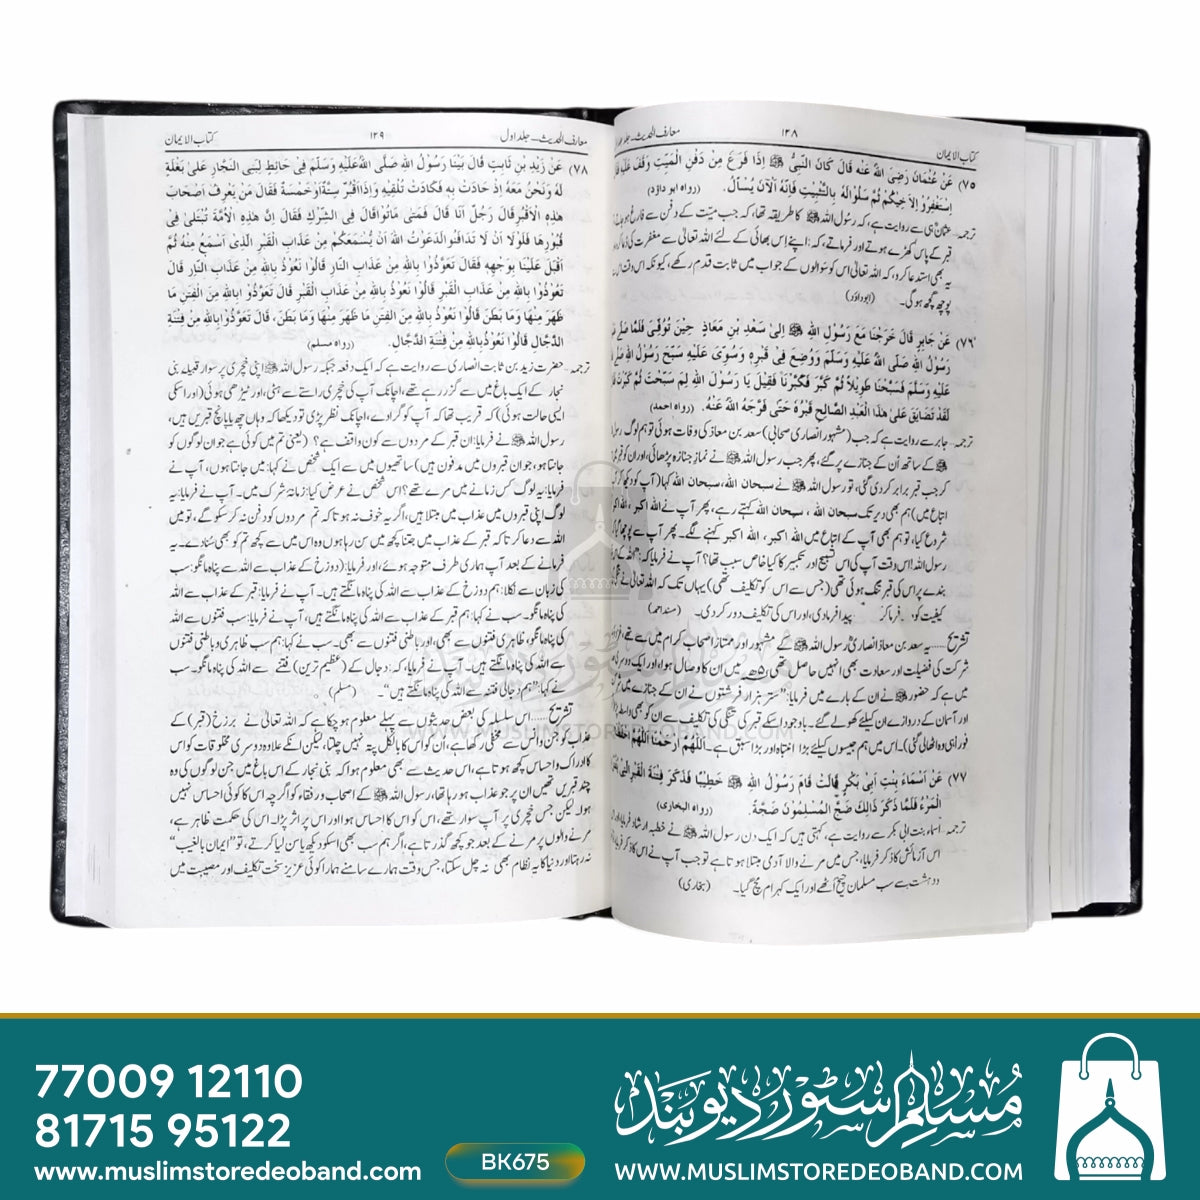 کتاب الایمان ۱۲۸ معارف الحدیث۔ جلد اول
(۷۵) عَنْ عُثْمَانَ رَضِیَ اللّٰہُ عَنْہُ قَالَ کَانَ النَّبِیُّ ﷺ اِذَا فَرَغَ مِنْ دَفْنِ الْمَیِّتِ وَقَفَ عَلَیْہِ
اِسْتَغْفِرُوْ الِاَخِیْکُمْ ثُمَّ سَلُوْا لَہُ بِالتَّثْبِیْتِ فَاِنَّہُ الْآنَ یُسْأَلُ. (رواہ ابو داؤد)
ترجمہ عثمانؓ ہی سے روایت ہے، کہ رسول اللہ ﷺ کا طریقہ تھا، کہ جب میت کے دفن سے فارغ ہو
قبر کے پاس کھڑے ہوتے اور فرماتے، کہ: اپنے اِس بھائی کے لئے اللہ تعالیٰ سے مغفرت کی دُعا کرو
یہ بھی استدعا کرو، کہ اللہ تعالیٰ اس کو سوالوں کے جواب میں ثابت قدم رکھے، کیونکہ اس وقت اس
پوچھ گچھ ہوگی۔ (ابوداؤد)
(۷۶) عَنْ جَابِرٍ قَالَ خَرَجْنَا مَعَ رَسُوْلِ اللّٰہِ ﷺ اِلیٰ سَعْدِ بْنِ مَعَاذٍ حِیْنَ تُوُفِّیَ فَلَمَّا صَلّٰی
رَسُوْلُ اللّٰہِ صَلَّی اللّٰہُ عَلَیْہِ وَسَلَّمَ وَوُضِعَ فِیْ قَبْرِہٖ وَسُوِّیَ عَلَیْہِ سَبَّحَ رَسُوْلُ اللّٰہِ
عَلَیْہِ وَسَلَّمَ فَسَبَّحْنَا طَوِیْلاً ثُمَّ کَبَّرَ فَکَبَّرْنَا فَقِیْلَ یَا رَسُوْلَ اللّٰہِ لِمَ سَبَّحْتَ ثُمَّ کَبَّرْتَ
لَقَدْ تَضَایَقَ عَلیٰ ھٰذَا الْعَبْدِ الصَّالِحِ قَبْرُہٗ حَتّٰی فَرَّجَہُ اللّٰہُ عَنْہُ. (رواہ احمد)
ترجمہ جابرؓ سے روایت ہے کہ جب (مشہور انصاری صحابی) سعد بن معاذ کی وفات ہوئی تو ہم لوگ
ﷺ کے ساتھ اُن کے جنازے پر گئے، پھر جب رسول اللہ ﷺ نے نمازِ جنازہ پڑھائی، اور ان کو
کر جب قبر برابر کر دی گئی، تو رسول اللہ ﷺ نے سبحان اللہ، سبحان اللہ کہا (آپ کو دیکھ کر
اتباع میں) ہم بھی دیر تک سبحان اللہ ، سبحان اللہ کہتے رہے، پھر آپ نے اللہ اکبر ، اللہ اکبر
شروع کیا، تو ہم بھی آپ کے اتباع میں اللہ اکبر ، اللہ اکبر کہنے لگے۔ پھر آپ سے پوچھا
رسول اللہ! اس وقت آپ کی اس تسبیح اور تکبیر کا کیا خاص سبب تھا؟ آپ نے فرمایا کہ
بندے پر اس کی قبر تنگ ہوئی تھی (جس سے اس کو تکلیف تھی) یہاں تک کہ اللہ تعالیٰ نے
کیفیت کو، فرما کر پیدا فرمادی، اور اس کی تکلیف دور کر دی۔ (مسند احمد)
تشریح......یہ سعد بن معاذ انصاریؓ رسول اللہ ﷺ کے مشہور اور ممتاز اصحاب کرام میں سے تھے،
شرکت کی فضیلت اور سعادت بھی انہیں حاصل تھی ۵ھ میں ان کا وصال ہوا، اور ایک
میں ہے کہ حضور ﷺ نے ان کے بارے میں فرمایا: "ستر ہزار فرشتوں نے ان کے جنازے میں
اور آسمان کے دروازے ان کیلئے کھولے گئے۔ باوجود اسکے قبر کی تنگی کی تکلیف سے ان کو بھی واسطہ
فوراً ہی وہ اٹھالی گئی)۔ اس میں ہم جیسوں کیلئے بڑا انتباہ اور بڑا سبق ہے۔ اَللّٰھُمَّ ارْحَمْنَا اَللّٰھُمَّ
(۷۷) عَنْ اَسْمَاءَ بِنْتِ اَبِیْ بَکْرٍ قَالَتْ قَامَ رَسُوْلُ اللّٰہِ ﷺ خَطِیْبًا فَذَکَرَ فِتْنَۃَ الْقَبْرِ الَّتِیْ
الْمَرْءُ فَلَمَّا ذَکَرَ ذَالِکَ ضَجَّ الْمُسْلِمُوْنَ ضَجَّۃً. (رواہ البخاری)
ترجمہ اسماء بنت ابی بکر سے روایت ہے، کہتی ہیں کہ ایک دن رسول اللہ ﷺ نے خطبہ ارشاد فرمایا
اس آزمائش کا ذکر فرمایا، جس میں مرنے والا آدمی مبتلا ہوتا ہے تو جب آپ نے اس کا ذکر
دہشت سے سب مسلمان چیخ اُٹھے اور ایک کہرام مچ گیا۔ (بخاری)
معارف الحدیث۔ جلد اول ۱۲۹ کتاب الایمان
(۷۸) عَنْ زَیْدِ بْنِ ثَابِتٍ قَالَ بَیْنَا رَسُوْلُ اللّٰہِ صَلَّی اللّٰہُ عَلَیْہِ وَسَلَّمَ فِیْ حَائِطٍ لِبَنِی النَّجَّارِ عَلیٰ بَغْلَۃٍ
لَہٗ وَنَحْنُ مَعَہٗ اِذْ حَادَتْ بِہٖ فَکَادَتْ تُلْقِیْہِ وَاِذَا اَقْبُرٌ سِتَّۃٌ اَوْ خَمْسَۃٌ فَقَالَ مَنْ یَعْرِفُ اَصْحَابَ
ھٰذِہِ الْاَقْبُرِ قَالَ رَجُلٌ اَنَا قَالَ فَمَتٰی مَاتُوْا قَالَ فِی الشِّرْکِ فَقَالَ اِنَّ ھٰذِہِ الْاُمَّۃَ تُبْتَلیٰ فِیْ
قُبُوْرِھَا فَلَوْلَا اَنْ لَا تَدَافَنُوْا لَدَعَوْتُ اللّٰہَ اَنْ یُّسْمِعَکُمْ مِنْ عَذَابِ الْقَبْرِ الَّذِیْ اَسْمَعُ مِنْہُ ثُمَّ
اَقْبَلَ عَلَیْنَا بِوَجْھِہٖ فَقَالَ تَعَوَّذُوْا بِاللّٰہِ مِنْ عَذَابِ النَّارِ قَالُوْا نَعُوْذُ بِاللّٰہِ مِنْ عَذَابِ النَّارِ قَالَ
تَعَوَّذُوْا بِاللّٰہِ مِنْ عَذَابِ الْقَبْرِ قَالُوْا نَعُوْذُ بِاللّٰہِ مِنْ عَذَابِ الْقَبْرِ قَالَ تَعَوَّذُوْا بِاللّٰہِ مِنَ الْفِتَنِ مَا
ظَھَرَ مِنْھَا وَمَا بَطَنَ قَالُوْا نَعُوْذُ بِاللّٰہِ مِنَ الْفِتَنِ مَا ظَھَرَ مِنْھَا وَمَا بَطَنَ، قَالَ تَعَوَّذُوْا بِاللّٰہِ مِنْ فِتْنَۃِ
الدَّجَّالِ قَالُوْا نَعُوْذُ بِاللّٰہِ مِنْ فِتْنَۃِ الدَّجَّالِ. (رواہ مسلم)
ترجمہ حضرت زید بن ثابت انصاری سے روایت ہے کہ ایک دفعہ جبکہ رسول اللہ ﷺ اپنی خچری پر سوار قبیلہ بنی
نجار کے ایک باغ میں سے گزر رہے تھے، اچانک آپ کی خچری راستے سے ہٹی، اور ٹیڑھی ہوئی (اور اسکی
ایسی حالت ہوئی) کہ قریب تھا کہ آپ کو گرا دے، اچانک نظر پڑی تو دیکھا کہ وہاں چھ یا پانچ قبریں ہیں،
رسول اللہ ﷺ نے فرمایا: ان قبر کے مردوں سے کون واقف ہے؟ (یعنی تم میں کوئی ہے جو ان لوگوں کو
جانتا ہو، جو ان قبروں میں مدفون ہیں) ساتھیوں میں سے ایک شخص نے کہا: میں جانتا ہوں، آپ نے
فرمایا: یہ لوگ کس زمانے میں مرے تھے؟ اس شخص نے عرض کیا: زمانۂ شرک میں۔ آپ نے فرمایا: یہ
لوگ اپنی قبروں میں عذاب میں مبتلا ہیں، اگر یہ خوف نہ ہوتا کہ تم مردوں کو دفن نہ کر سکو گے، تو میں
اللہ سے دعا کرتا کہ قبر کے عذاب میں جتنا کچھ میں سن رہا ہوں وہ اس میں سے کچھ تم کو بھی سُنا دے۔ یہ
فرمانے کے بعد آپ ہماری طرف متوجہ ہوئے، اور فرمایا: (دوزخ کے عذاب سے اللہ سے پناہ مانگو: سب
کی زبان سے نکلا: ہم دوزخ کے عذاب سے اللہ کی پناہ مانگتے ہیں۔ آپ نے فرمایا: قبر کے عذاب سے اللہ
کی پناہ مانگو۔ سب نے کہا: ہم قبر کے عذاب سے اللہ کی پناہ مانگتے ہیں۔ آپ نے فرمایا: سب فتنوں سے اللہ
کی پناہ مانگو، ظاہری فتنوں سے بھی، اور باطنی فتنوں سے بھی۔ سب نے کہا: ہم سب ظاہری و باطنی فتنوں
سے اللہ کی پناہ مانگتے ہیں۔ آپ نے فرمایا، کہ: دجال کے (عظیم ترین) فتنے سے اللہ کی پناہ مانگو۔ سب
نے کہا: "ہم دجالی فتنہ سے اللہ کی پناہ مانگتے ہیں"۔ (مسلم)
تشریح......اس سلسلہ کی بعض حدیثوں سے پہلے معلوم ہو چکا ہے کہ اللہ تعالیٰ نے برزخ (قبر) کے
عذاب کو جن و انس سے مخفی رکھا ہے، ان کو اس کا بالکل پتہ نہیں چلتا، لیکن انکے علاوہ دوسری مخلوقات کو اس
کا ادراک و احساس کچھ ہوتا ہے، اس حدیث سے بھی معلوم ہوا کہ بنی نجار کے اس باغ میں جن لوگوں کی وہ
چند قبریں تھیں ان پر جو عذاب ہو رہا تھا، رسول اللہ ﷺ کے اصحاب و رفقاء کو اگرچہ اس کا کوئی احساس نہیں
ہوا۔ لیکن جس خچری پر آپ سوار تھے، اس کو اس کا احساس ہوا اور اس پر اثر پڑا۔ اس کی حکمت ظاہر ہے،
مرنے والوں پر مرنے کے بعد جو کچھ گذرتا ہے، اگر ہم سب بھی اسکو دیکھ یا سن لیا کرتے، تو "ایمان بالغیب"
نہ رہتا اور دنیا کا یہ نظام بھی نہ چل سکتا، جس وقت ہمارے سامنے ہمارا کوئی عزیز سخت تکلیف اور مصیبت میں
مسلم سٹور دیوبند
WWW.MUSLIMSTOREDEOBAND.COM
77009 12110
81715 95122
www.muslimstoredeoband.com
BK675
مسلم سٹور دیوبند
WWW.MUSLIMSTOREDEOBAND.COM